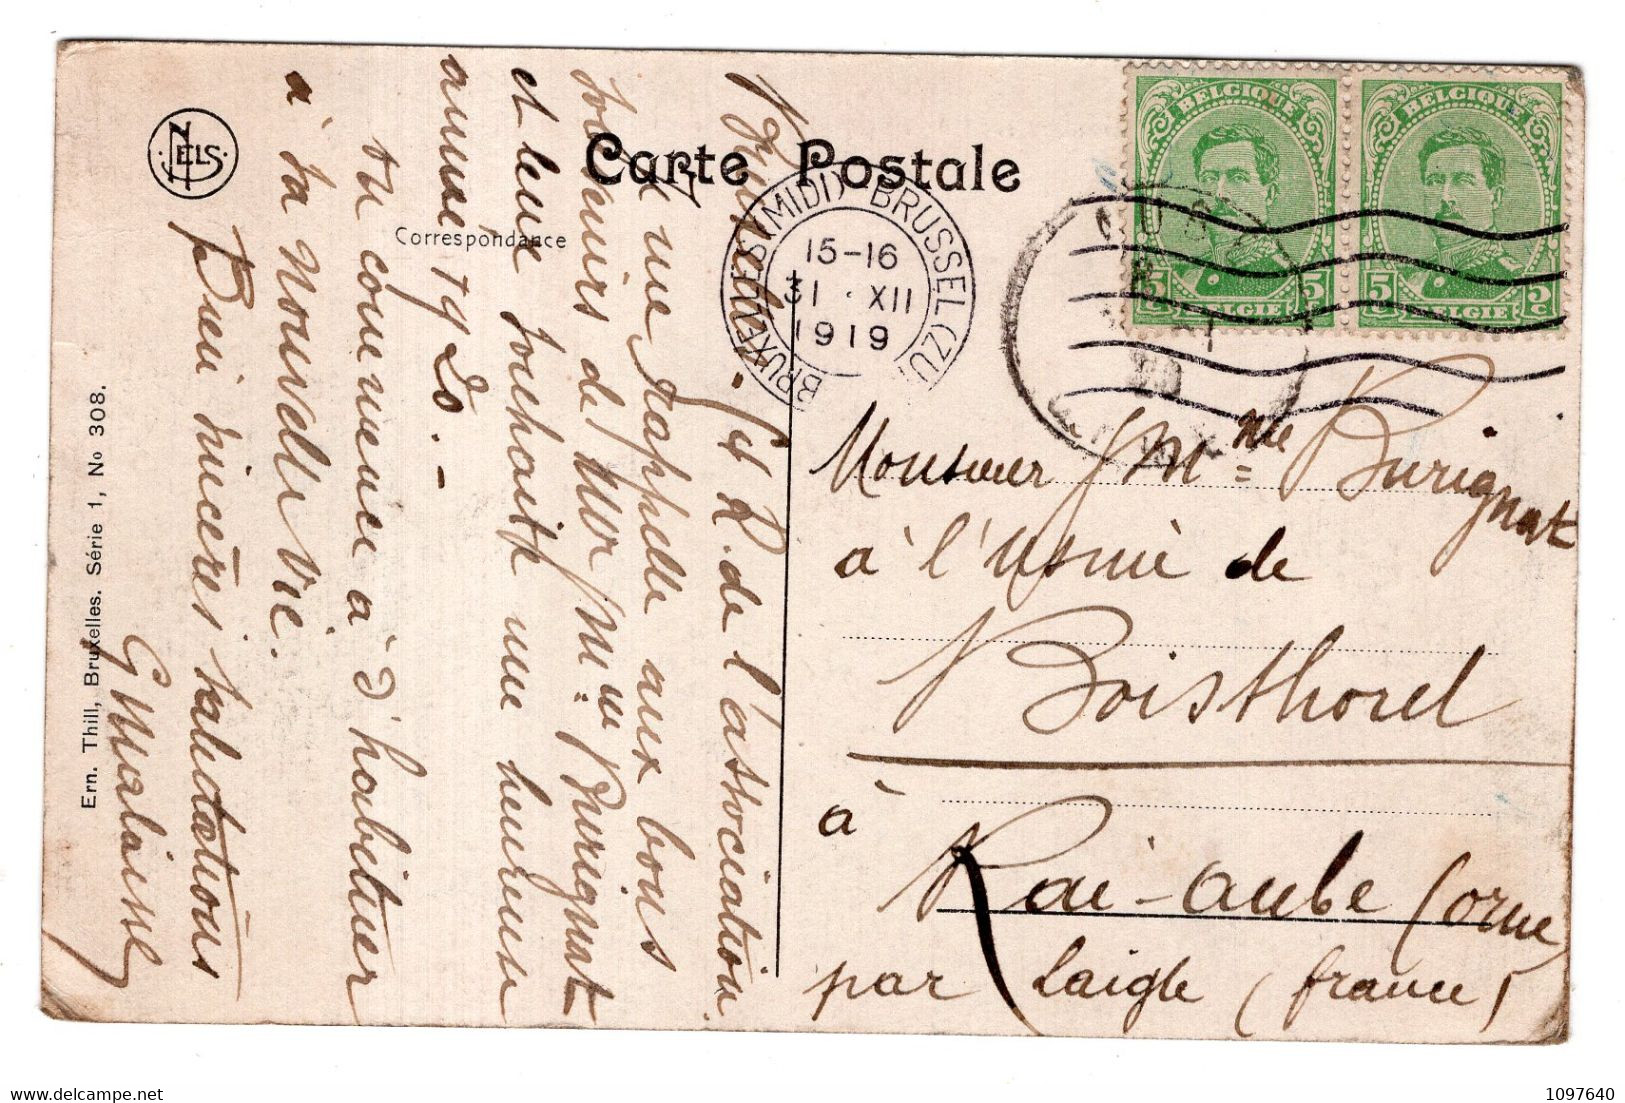 Carte Postale
Correspondance
NELS
Ern. Thill, Bruxelles. Série 1, No 308.
BELGIQUE
5 5
BELGIE
BELGIQUE
5 5
BELGIE
BRUXELLES (MIDI) BRUSSEL (ZUI
15-16
31 · XII
1919
Bruxelles - Le de l'association
se rappelle aux bons
souvenirs de Mor Mme Burignat
et leur souhaite une heureuse
année 1920. -
on commence à s'habituer
à la nouvelle vie.
Bien sincères salutations
G Malaisse
Monsieur Mme Burignat
à l'usine de
Boisthorel
à
Rai-Aube (Orne)
par Laigle (france)
1097640